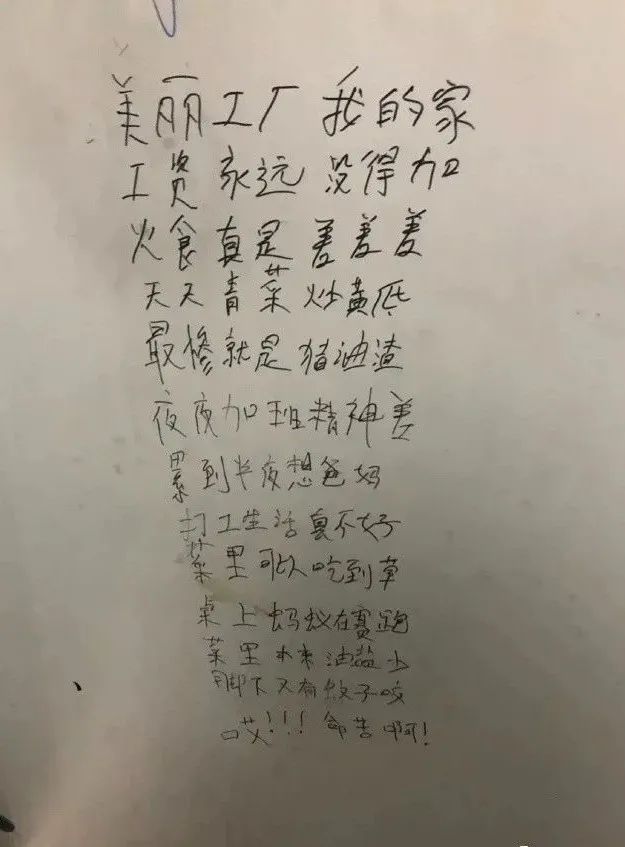 美丽工厂我的家
工资永远没得加
火食真是差差差
天天青菜炒黄瓜
最惨就是猪油渣
夜夜加班精神差
累到半夜想爸妈
打工生活真不好
菜里可以吃到草
桌上蚂蚁在赛跑
菜里本来油盐少
脚下又有蚊子咬
哎!!!命苦啊!